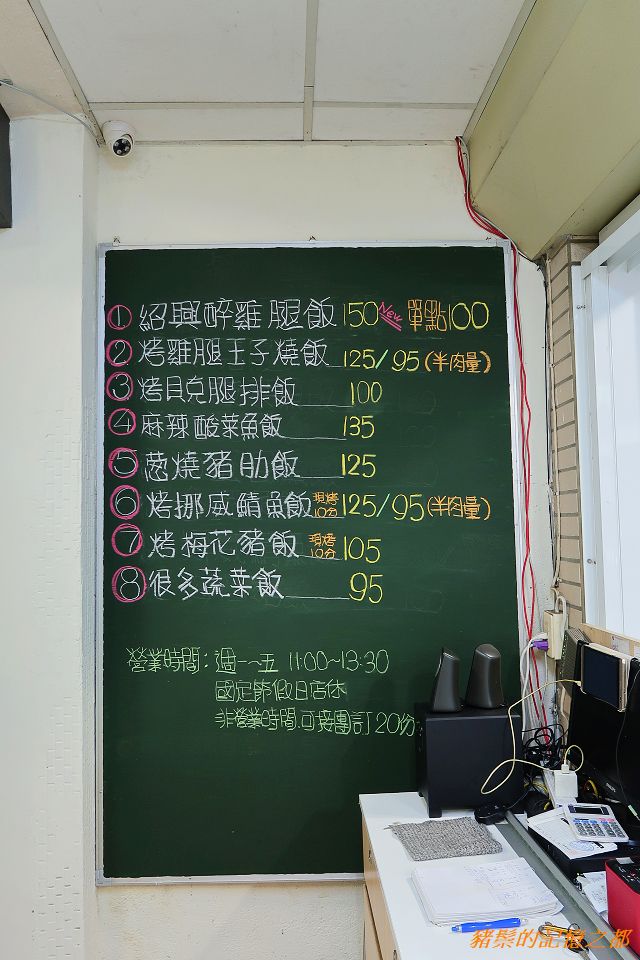 ① 紹興醉雞腿飯 150 New 單點100
② 烤雞腿王子燒飯 125/95(半肉量)
③ 烤貝克腿排飯 100
④ 麻辣酸菜魚飯 135
⑤ 蔥燒豬肋飯 125
⑥ 烤挪威鯖魚飯 現烤10分 125/95(半肉量)
⑦ 烤梅花豬飯 現烤10分 105
⑧ 很多蔬菜飯 95
營業時間：週一~五 11:00~13:30
國定節假日店休
非營業時間.可接團訂20份
豬鬃的記憶之都